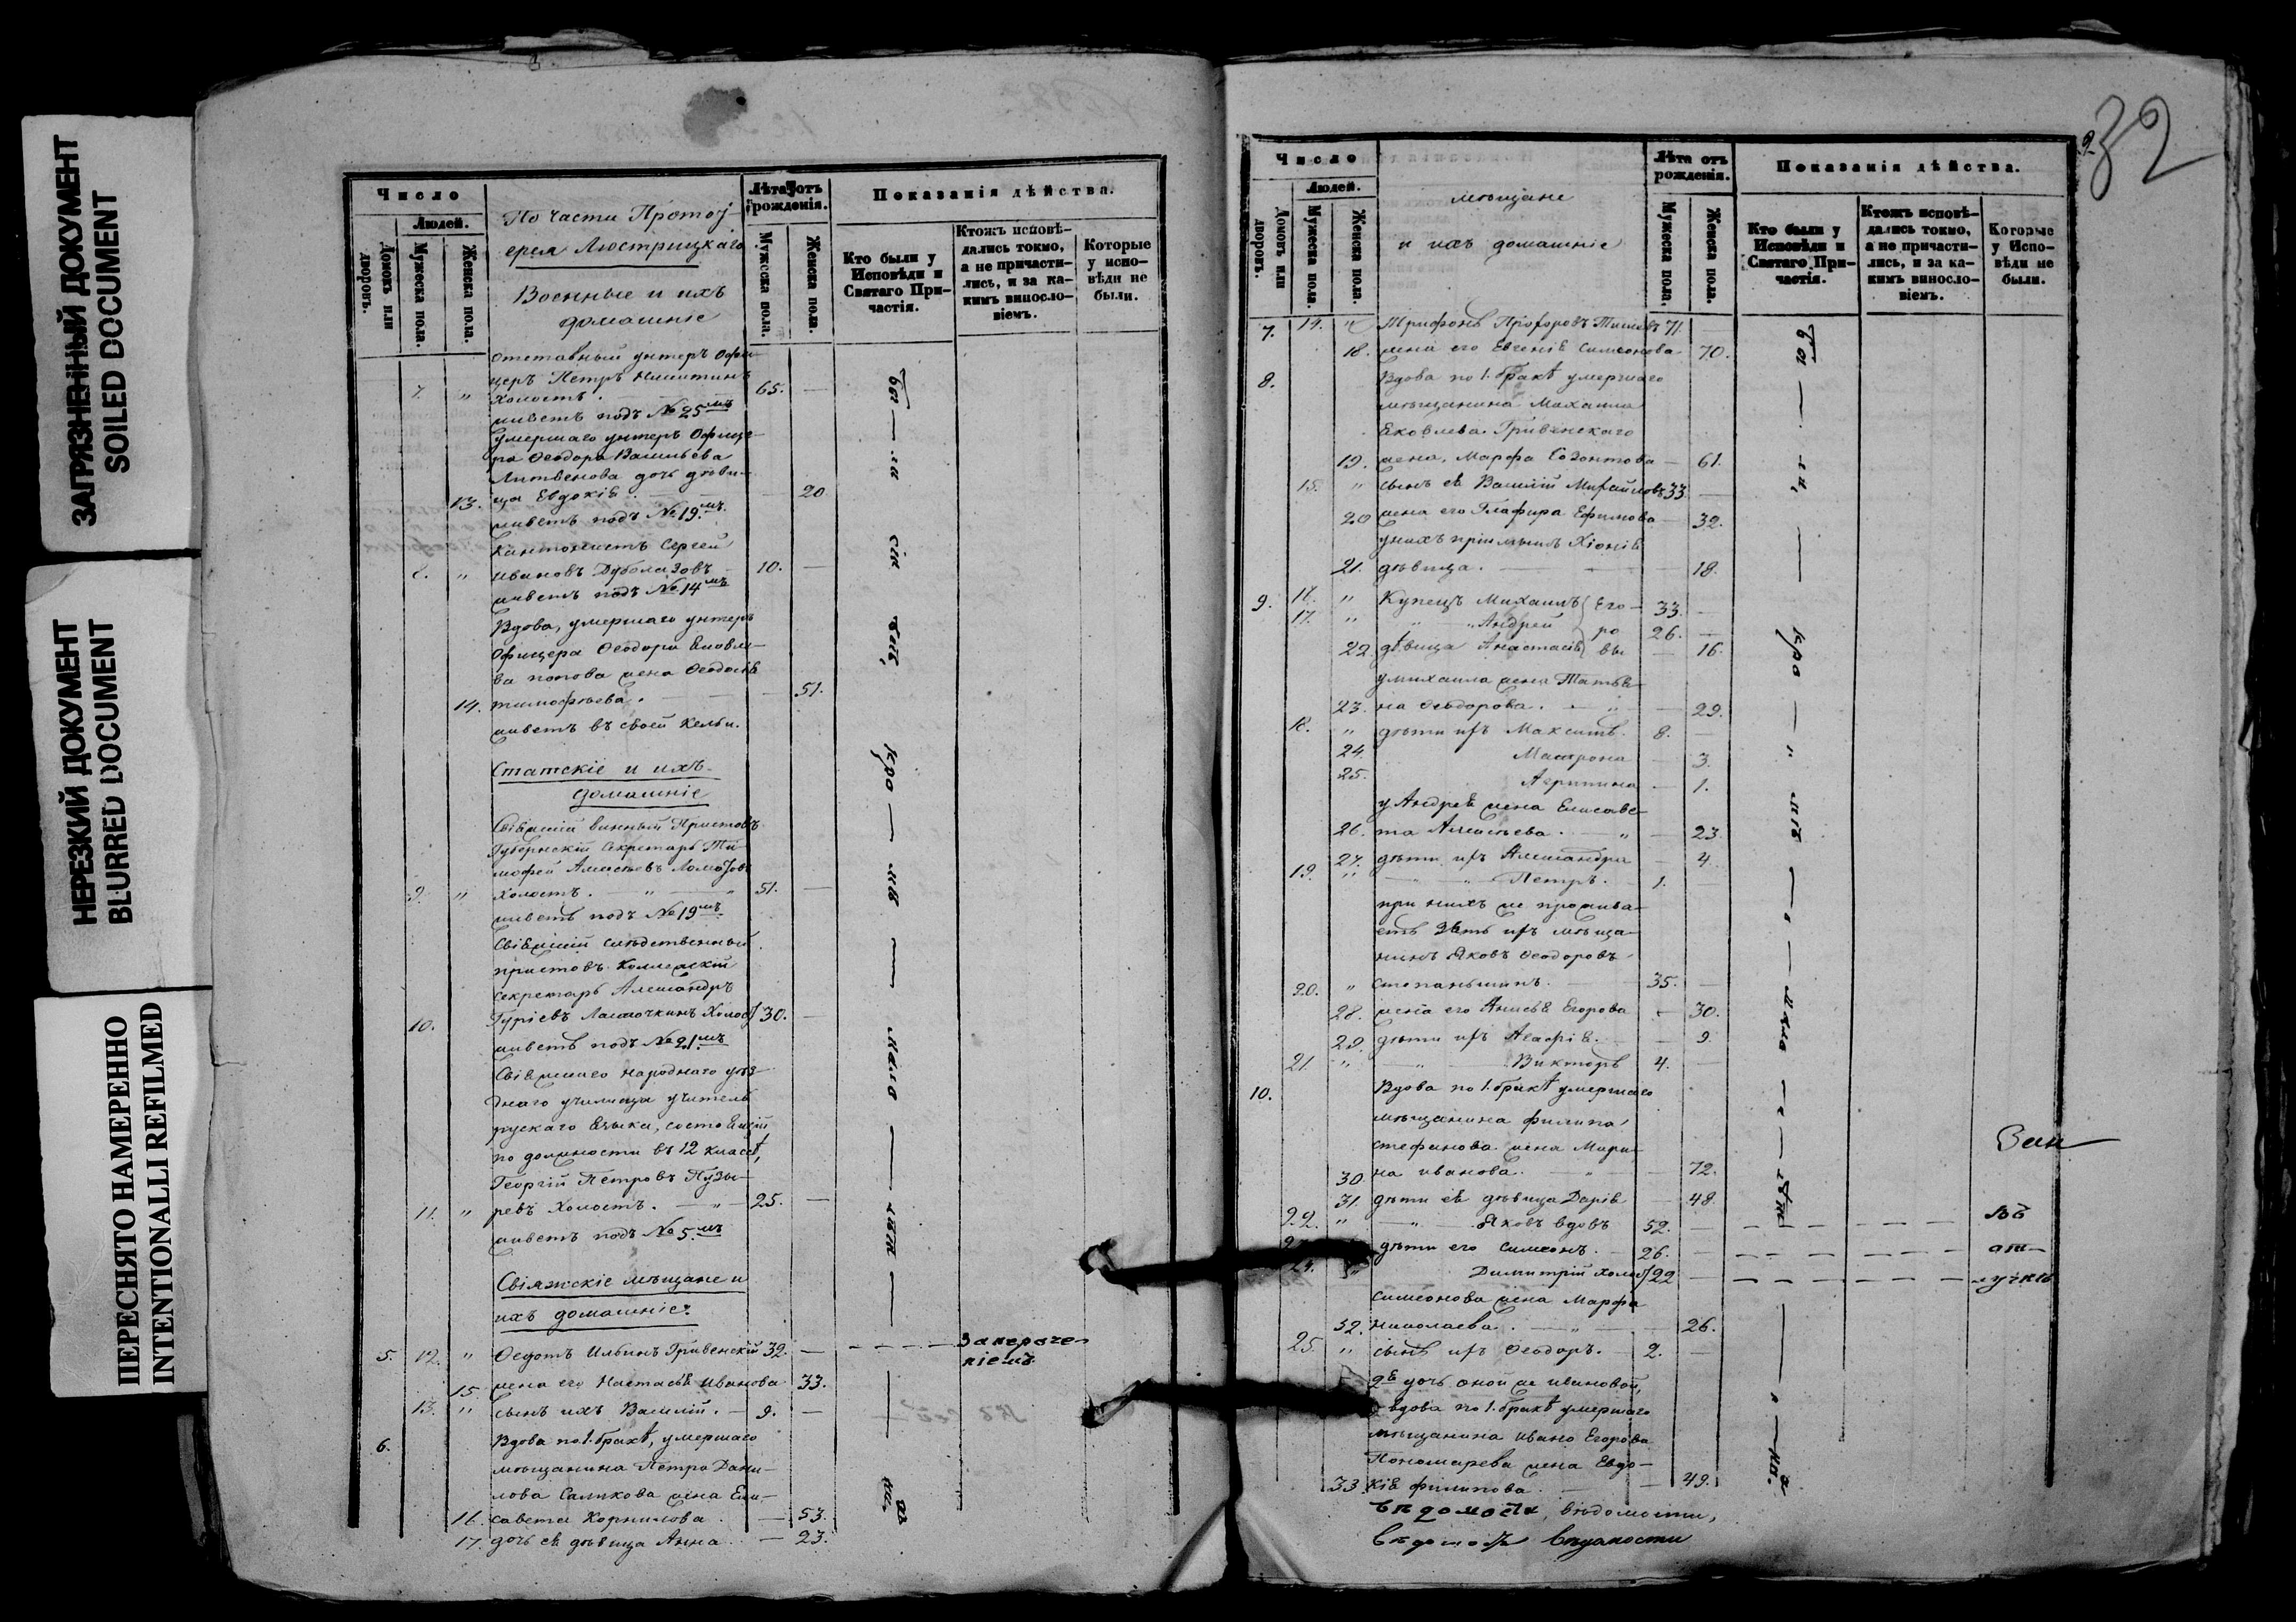 ЗАГРЯЗНЕННЫЙ ДОКУМЕНТ
SOILED DOCUMENT
НЕРЕЗКИЙ ДОКУМЕНТ
BLURRED DOCUMENT
ПЕРЕСНЯТО НАМЕРЕННО
INTENTIONALLI REFILMED
Число
Людей.
Домовъ или дворовъ.
Мужеска пола.
Женска пола.
По части Протоі-
ерея Люстрицкаго
Военные и ихъ
домашніе
Лѣта отъ рожденія.
Мужеска пола.
Женска пола.
Показанія дѣйства.
Кто были у Исповѣди и Святаго Причастія.
Ктожъ исповѣ-
дались токмо,
а не причасти-
лись, и за ка-
кимъ виносло-
віемъ.
Которые
у испо-
вѣди не
были.
отставный унтеръ офи-
церъ Петръ Никитинъ
7. " холостъ. 65. —
живетъ подъ № 25мъ
умершаго унтеръ офице-
ра Ѳеодора Васильева
Литвенова дочь дѣви-
13. ца Евдокія. — 20
живетъ подъ № 19.мъ
Кантонистъ Сергей
8. " Ивановъ 10. —
живетъ подъ № 14мъ
Вдова, умершаго унтеръ
офицера Ѳеодора Яковле-
ва Попова жена Ѳеодосія
14. тимофѣева. — 51.
живетъ въ своей кельи.
Статскіе и ихъ
домашніе
Свіяжскій винный Приставъ
Губернскій Секретарь Ти-
мофей Алексѣевъ
9. " холостъ. — " — " 51. —
живетъ подъ № 19мъ
Свіяжскій слѣдственный
приставъ Коллежскій
Секретарь Александръ
10. Гуріевъ Ласточкинъ холос. 30. —
живетъ подъ № 21.мъ
Свіяжскаго народнаго уѣз-
днаго училища учитель
рускаго языка, состоящій
по должности въ 12 классѣ,
Георгій Петровъ Пузы-
11. " ревъ холостъ. — " — 25. —
живетъ подъ № 5.мъ
Свіяжскіе мѣщане и
ихъ домашніе.
5. 12. " Ѳедотъ Ильинъ Гривенскій 32. —
15. жена его Настасья Иванова 33.
13. " сынъ ихъ Василій. — 9. —
6. Вдова по 1. бракѣ, умершаго
мѣщанина Петра Дани-
лова Саликова жена Ели-
16. савета Корнилова — 53.
17. дочь ея дѣвица Анна — 23.
32
Число
Людей.
Домовъ или дворовъ.
Мужеска пола.
Женска пола.
мѣщане
и ихъ домашніе
Лѣта отъ рожденія.
Мужеска пола.
Женска пола.
Показанія дѣйства.
Кто были у
Исповѣди и
Святаго При-
частія.
Ктожъ исповѣ-
дались токмо,
а не причасти-
лись, и за ка-
кимъ виносло-
віемъ.
Которые
у Испо-
вѣди не
были.
7. 14. " Трифонъ 71. —
18. жена его Евгенія Симеонова 70.
8. Вдова по 1. бракѣ умершаго
мѣщанина Михаила
Яковлева Гривенскаго
19. жена, Марфа Созонтова — 61.
15. " сынъ ея Василій Михайловъ 33 —
20 жена его Глафира Ефимова — 32.
у нихъ пріимышъ Хіонія
21. дѣвица. — 18.
9. 16. " Купецъ Михаилъ Его- 33. —
17. " " Андрей ро 26. —
22 дѣвица Анастасія вы — 16.
у Михаила жена Татья-
23. на Ѳеодорова. — " — 29.
18. " дѣти ихъ Максимъ. 8. —
24. Матрона — 3.
25. Агрипина — 1.
у Андрея жена Елисаве-
26. та Алексѣева. — " — 23
27. дѣти ихъ Александра — 4.
19. " — " Петръ. — 1. —
при нихъ же прожива-
етъ зять ихъ мѣща-
нинъ Яковъ Ѳеодоровъ
20. " 35. —
28. жена его Анисья Егорова — 30.
29. дѣти ихъ Агафія. — 9.
21. " — " Викторъ 4. —
10. Вдова по 1. бракѣ умершаго
мѣщанина филипа
стефанова жена Мари-
30 на иванова. — " — 72.
31. дѣти ея дѣвица Дарія — 48.
22. " — " — Яковъ вдовъ 52. —
дѣти его Симеонъ. — 26. —
24. " Димитрій холос. 22 —
Симеонова жена Марфа
32. николаева. — " — 26.
25. " сынъ ихъ Ѳеодоръ. — 2. —
2я дочь оной же ивановой,
вдова по 1. бракѣ умершаго
мѣщанина ивана Егорова
Пономарева жена Евдо-
33. кія филипова. — 49.
вѣдомости, вѣдомости,